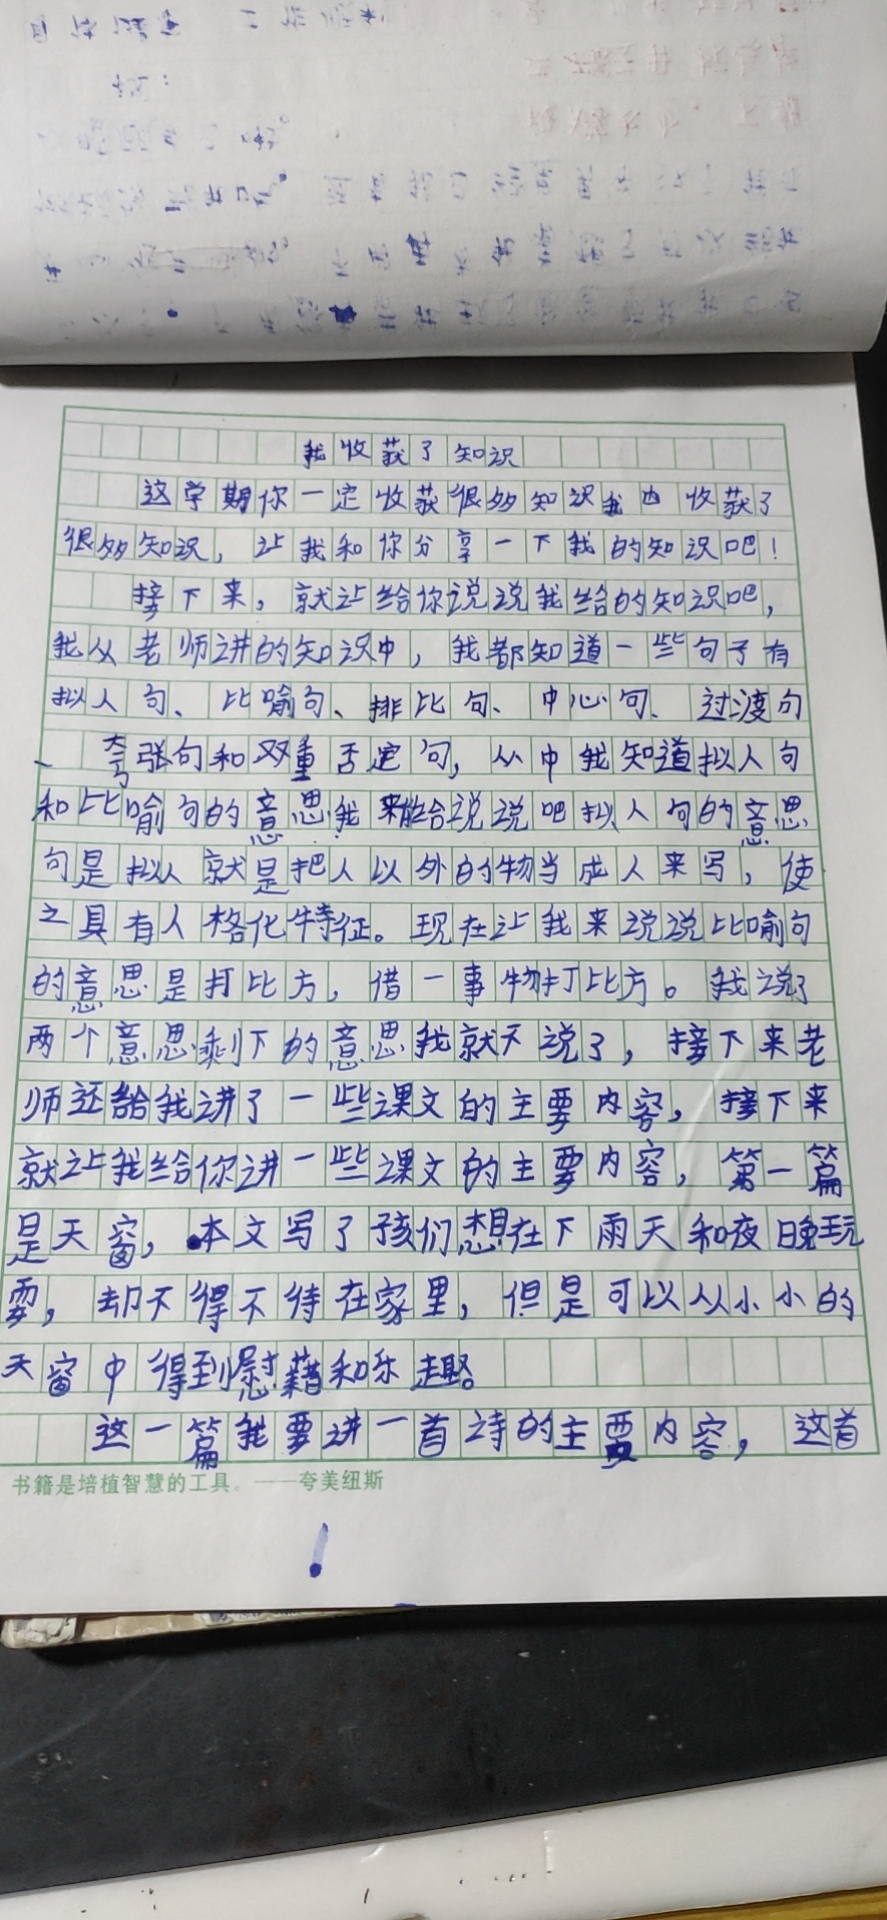 我收获了知识
这学期你一定收获很多知识我也收获了
很多知识，让我和你分享一下我的知识吧！
接下来，就让给你说说我给的知识吧，
我从老师讲的知识中，我都知道一些句子有
拟人句、比喻句、排比句、中心句、过渡句
、夸张句和双重否定句，从中我知道拟人句
和比喻句的意思我来给说说吧拟人句的意思
句是拟人就是把人以外的物当成人来写，使
之具有人格化特征。现在让我来说说比喻句
的意思是打比方，借一事物打比方。我说了
两个意思剩下的意思我就不说了，接下来老
师还给我讲了一些课文的主要内容，接下来
就让我给你讲一些课文的主要内容，第一篇
是天窗，本文写了孩们想在下雨天和夜晚玩
耍，却不得不待在家里，但是可以从小小的
天窗中得到慰藉和乐趣。
这一篇我要讲一首诗的主要内容，这首
书籍是培植智慧的工具。——夸美纽斯